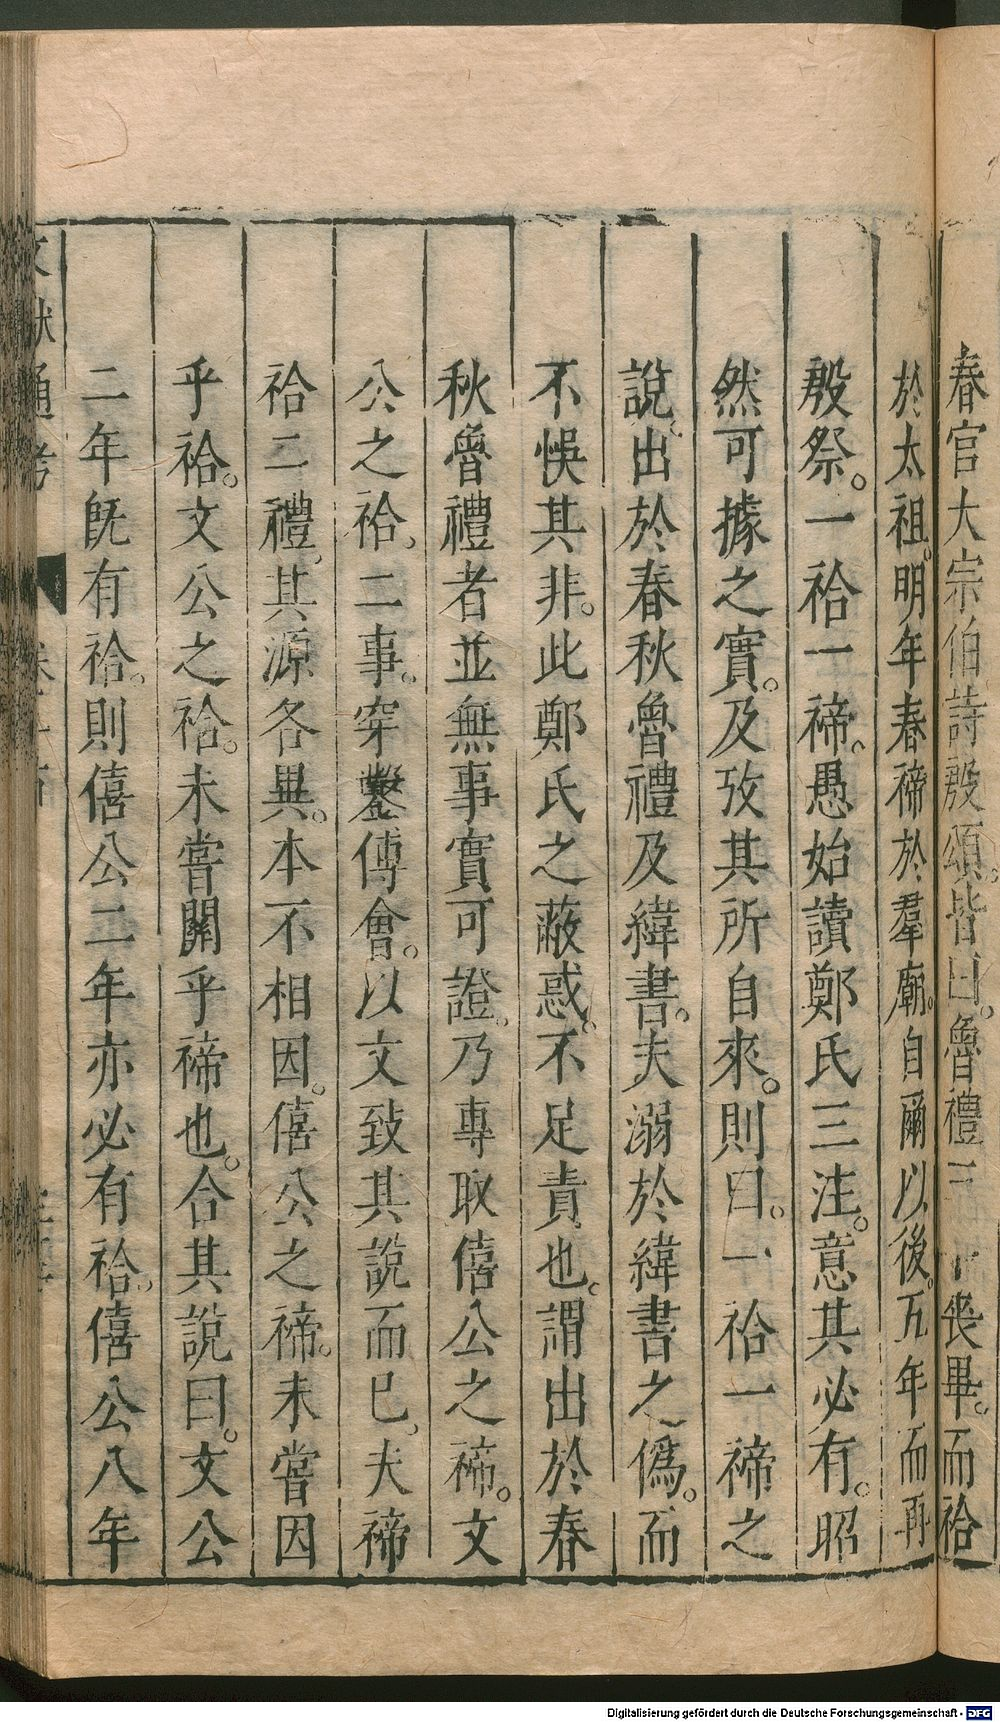 春官大宗伯詩殷頌。皆曰。魯禮三 喪畢。而祫
於太祖。明年春禘於羣廟。自爾以後。五年而再
殷祭。一祫一禘。愚始讀鄭氏三注。意其必有。昭
然可據之實。及攷其所自來。則曰。一祫一禘之
說。出於春秋魯禮及緯書。夫溺於緯書之僞。而
不悞其非。此鄭氏之蔽惑。不足責也。謂出於春
秋魯禮者並無事實可證。乃專取僖公之禘。文
公之祫。二事。穿鑿傅會。以文致其說而已。夫禘
祫二禮。其源各異。本不相因。僖公之禘。未嘗因
乎祫。文公之祫。未嘗關乎禘也。合其說曰。文公
二年旣有祫。則僖公二年亦必有祫。僖公八年
文獻通考
Digitalisierung gefördert durch die Deutsche Forschungsgemeinschaft - DFG